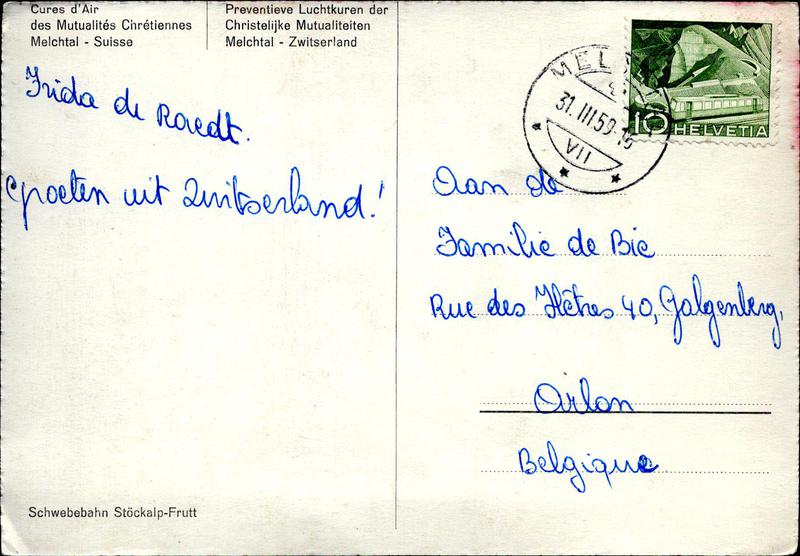 Cures d'Air
des Mutualités Chrétiennes
Melchtal - Suisse
Preventieve Luchtkuren der
Christelijke Mutualiteiten
Melchtal - Zwitserland
31. III 59
VII
10 HELVETIA
Frida de Raedt.
Groeten uit Zwitserland!
Aan de
Familie de Bie
Rue des Hêtres 40, Galgenberg,
Arlon
Belgique
Schwebebahn Stöckalp-Frutt